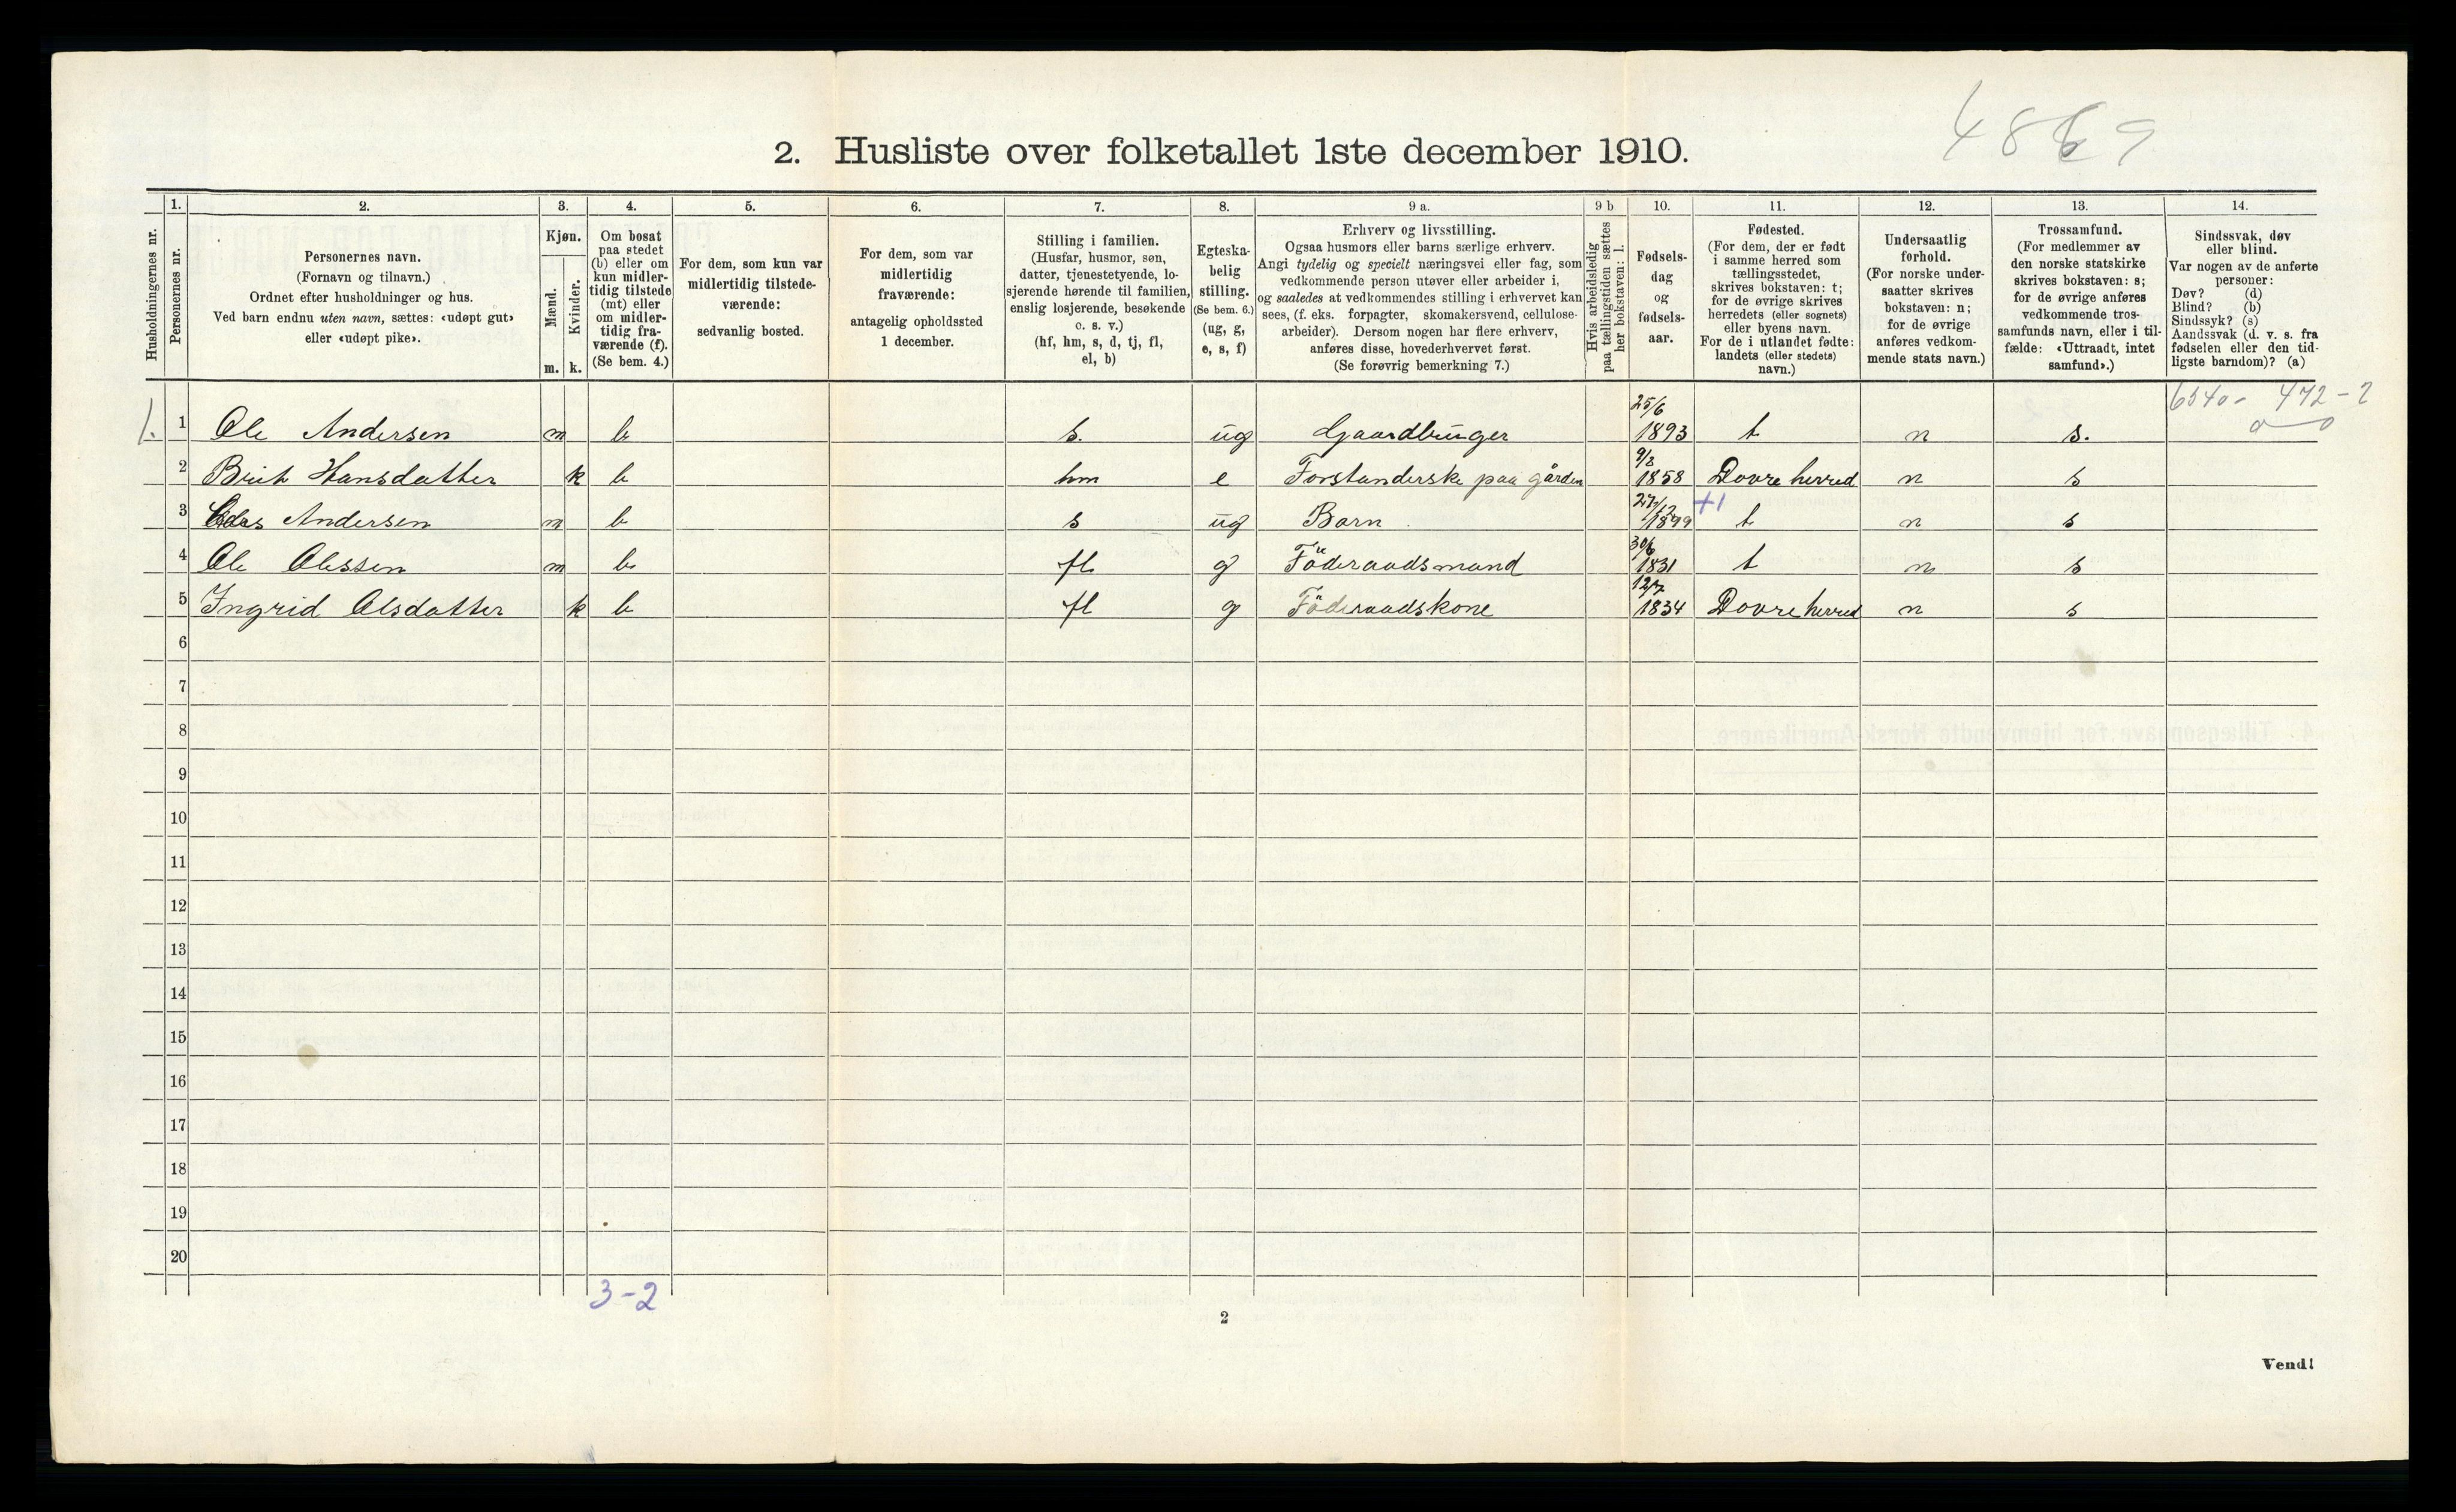 4869
2. Husliste over folketallet 1ste december 1910.
Husholdningernes nr.
1. Personernes nr.
2. Personernes navn. (Fornavn og tilnavn.) Ordnet efter husholdninger og hus. Ved barn endnu uten navn, sættes: «udøpt gut» eller «udøpt pike».
3. Kjøn. Mænd. m. Kvinder. k.
4. Om bosat paa stedet (b) eller om kun midlertidig tilstede (mt) eller om midlertidig fraværende (f). (Se bem. 4.)
5. For dem, som kun var midlertidig tilstedeværende: sedvanlig bosted.
6. For dem, som var midlertidig fraværende: antagelig opholdssted 1 december.
7. Stilling i familien. (Husfar, husmor, søn, datter, tjenestetyende, losjerende hørende til familien, enslig losjerende, besøkende o. s. v.) (hf, hm, s, d, tj, fl, el, b)
8. Egteskabelig stilling. (Se bem. 6.) (ug, g, e, s, f)
9 a. Erhverv og livsstilling. Ogsaa husmors eller barns særlige erhverv. Angi tydelig og specielt næringsvei eller fag, som vedkommende person utøver eller arbeider i, og saaledes at vedkommendes stilling i erhvervet kan sees, (f. eks. forpagter, skomakersvend, cellulosearbeider). Dersom nogen har flere erhverv, anføres disse, hovederhvervet først. (Se forøvrig bemerkning 7.)
9 b Hvis arbeidsledig paa tællingstiden sættes her bokstaven: l.
10. Fødselsdag og fødselsaar.
11. Fødested. (For dem, der er født i samme herred som tællingsstedet, skrives bokstaven: t; for de øvrige skrives herredets (eller sognets) eller byens navn. For de i utlandet fødte: landets (eller stedets) navn.)
12. Undersaatlig forhold. (For norske undersaatter skrives bokstaven: n; for de øvrige anføres vedkommende stats navn.)
13. Trossamfund. (For medlemmer av den norske statskirke skrives bokstaven: s; for de øvrige anføres vedkommende trossamfunds navn, eller i tilfælde: «Uttraadt, intet samfund».)
14. Sindssvak, døv eller blind. Var nogen av de anførte personer: Døv? (d) Blind? (b) Sindssyk? (s) Aandssvak (d. v. s. fra fødselen eller den tidligste barndom)? (a)
6540 - 472 - 2
1. 1 Ole Andersen m b s. ug Gaardbruger 25/6 1893 t n s.
2 Brit Hansdatter k b hm e Forstanderske paa gården 9/8 1858 Dovre herred n s
3 Andersen m b s ug Barn 27/12 1899 +1 t n s
4 Ole Olessen m b fl g Föderaadsmand 30/6 1831 t n s
5 Ingrid Olsdatter k b fl g Föderaadskone 12/7 1834 Dovre herred n s
6
7
8
9
10
11
12
13
14
15
16
17
18
19
20
3-2
2
Vend!